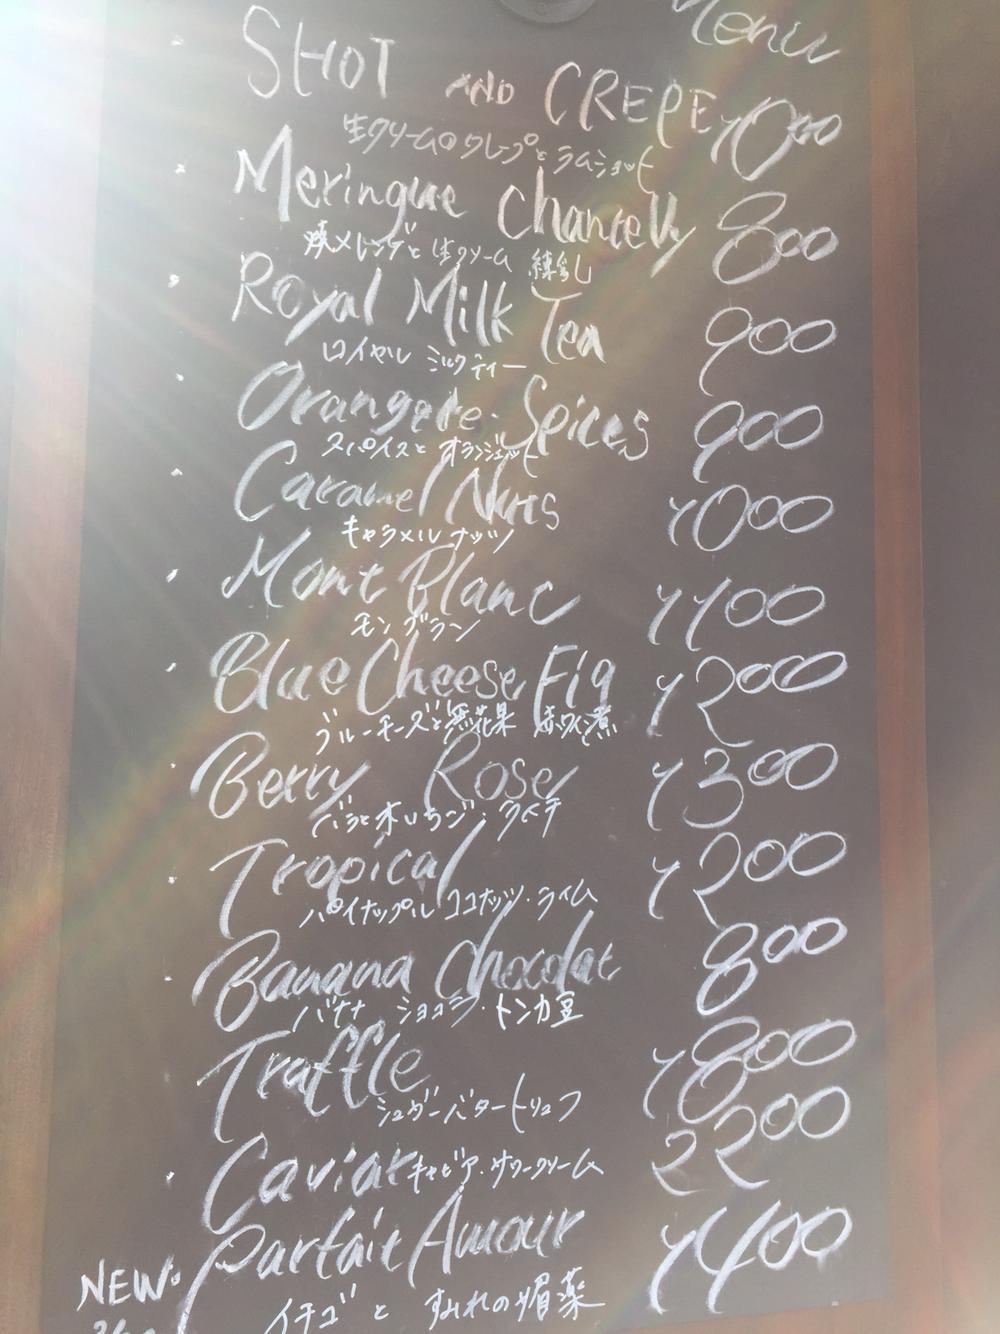 Menu
SHOT AND CREPE 1000
生クリームのクレープとラムショット
Meringue Chantelly 800
焼メレンゲと生クリーム 練乳
Royal Milk Tea 900
ロイヤル ミルクティー
Orangete・Spices 900
スパイスと オランジェット
Caramel Nuts 1000
キャラメル ナッツ
Mont Blanc 1100
モンブラン
Blue Cheese, Fig 1200
ブルーチーズと無花果 赤ワイン煮
Berry Rose 1300
バラと木いちご・ライチ
Tropical 1200
パイナップル ココナッツ・ライム
Banana Chocolat 800
バナナ ショコラ・トンカ豆
Traffle 1800
シュガーバタートリュフ
Caviar キャビア・サワークリーム 2200
NEW・Parfait Amour 1400
イチゴと すみれの媚薬